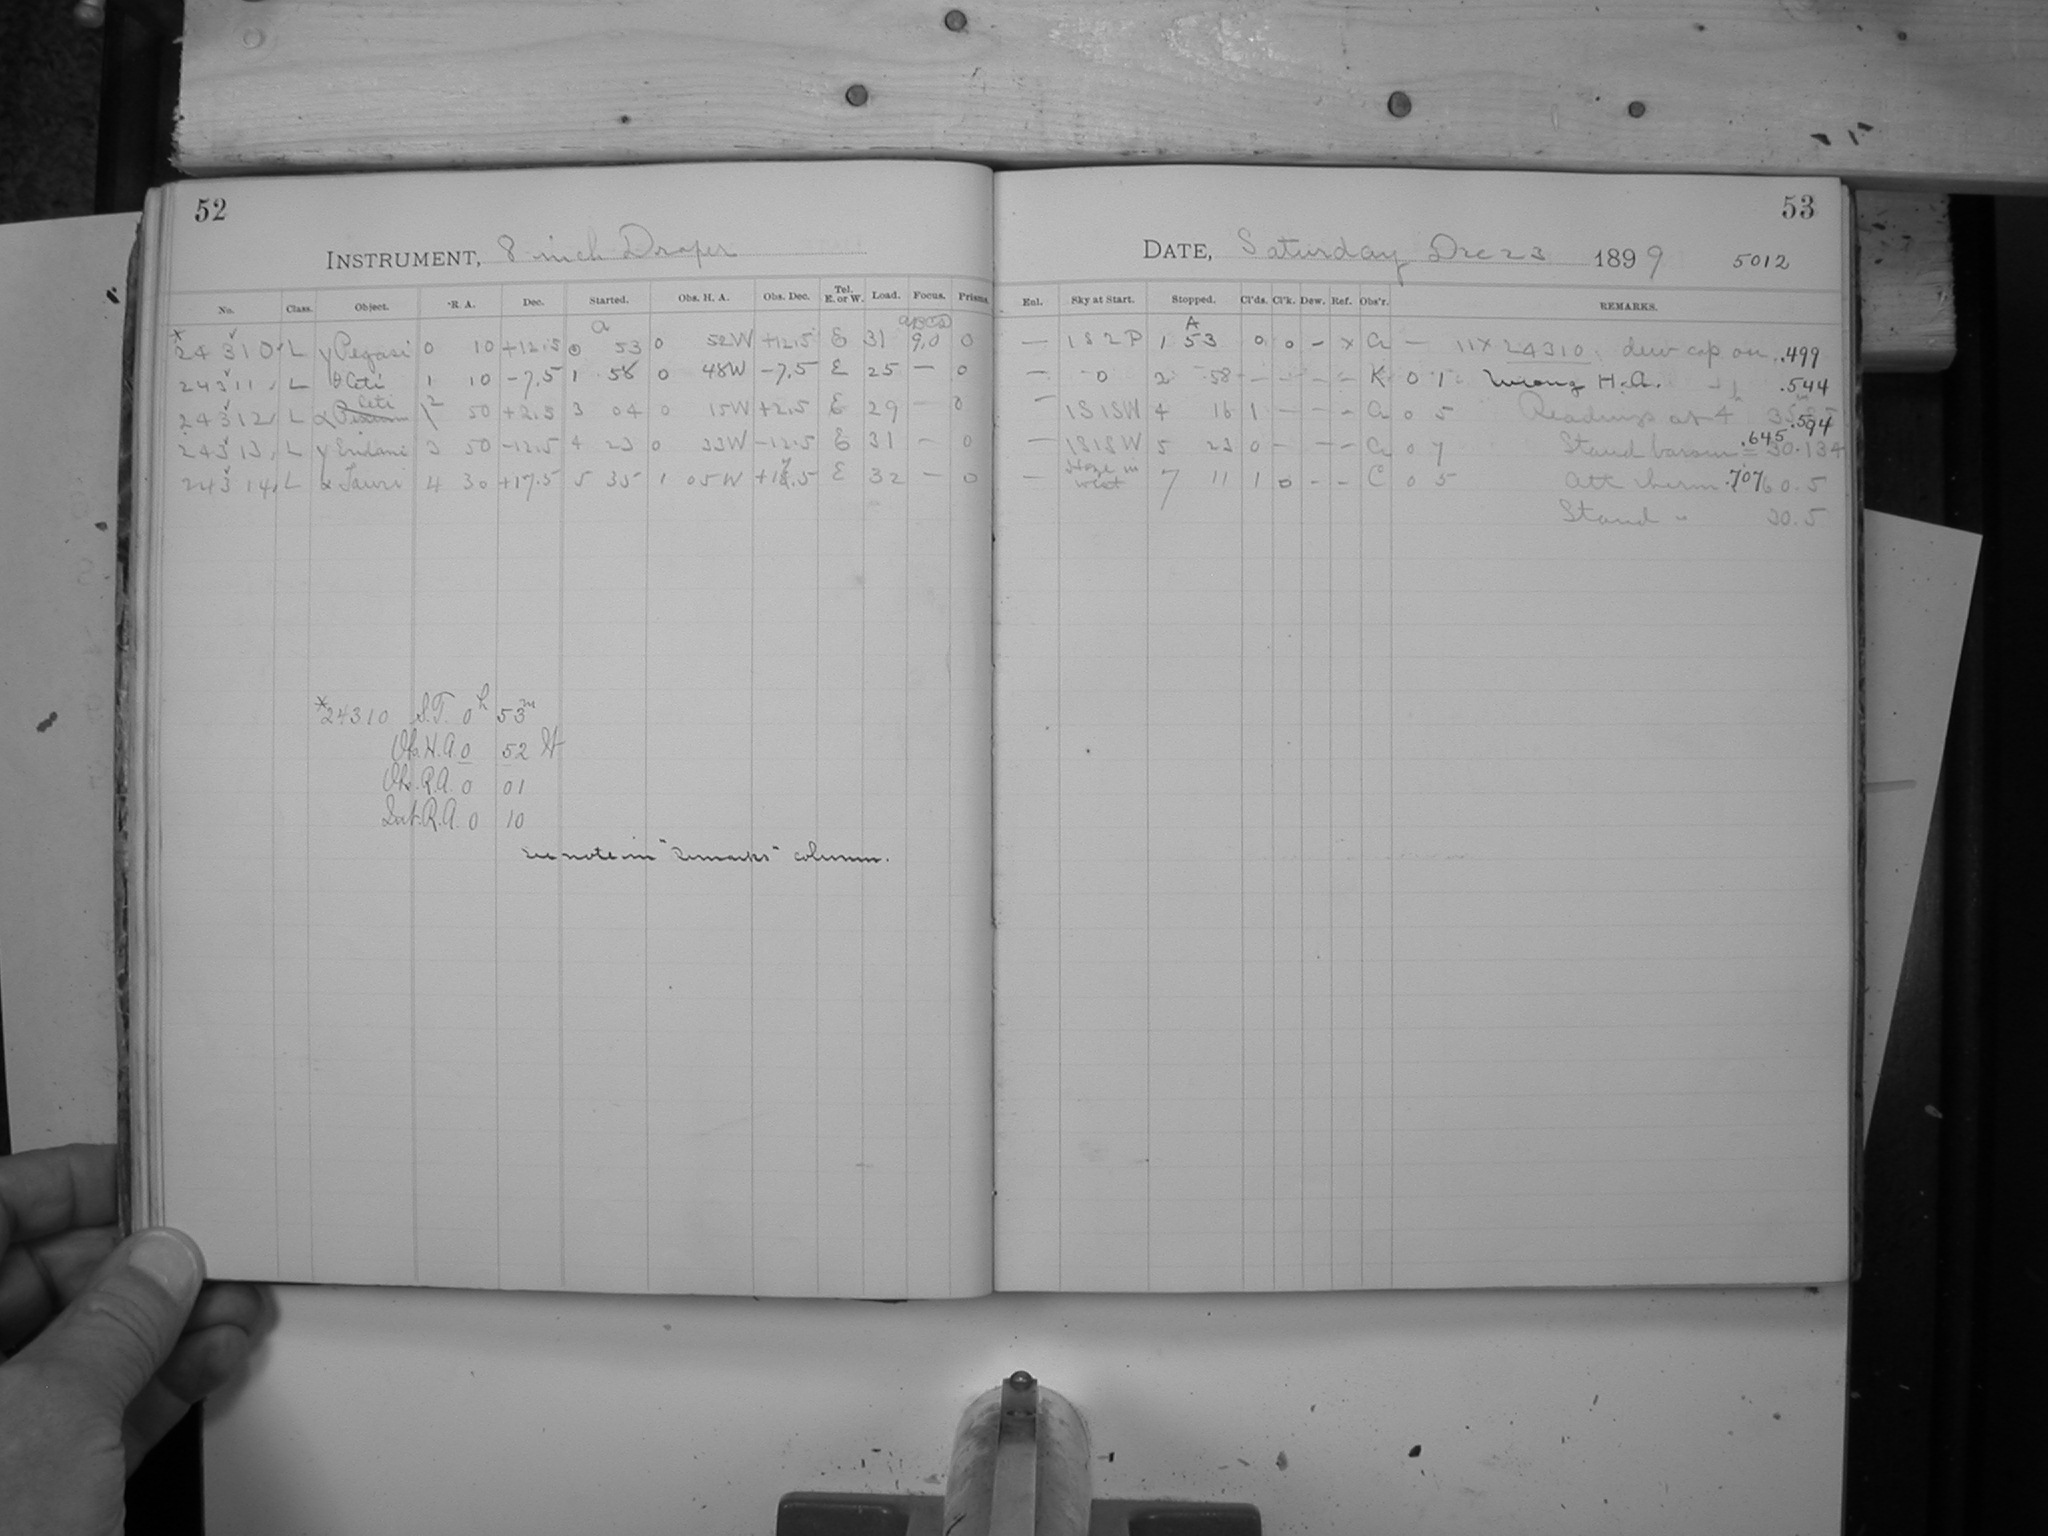 52
INSTRUMENT, 8 inch Draper
No. Class. Object. R. A. Dec. Started. Obs. H. A. Obs. Dec. Tel. E. or W. Load. Focus. Prisms.
a
*24310 L γ Pegasi 0 10 +12.5 0 53 0 52W +12.5 E 31 9.0 0
24311 L θ Ceti 1 10 -7.5 1 58 0 48W -7.5 E 25 — 0
Ceti
24312 L α 2 50 +2.5 3 04 0 15W +2.5 E 29 — 0
24313 L γ Eridani 3 50 -12.5 4 23 0 33W -12.5 E 31 — 0
24314 L α Tauri 4 30 +17.5 5 35 1 05W +17.5 E 32 — 0
*24310 S.T. 0h 53m
Ob. H.A. 0 52 W
Ob. R.A. 0 01
R.A. 0 10
See note in "Remarks" column.
53
DATE, Saturday Dec 23 1899 5012
Enl. Sky at Start. Stopped. Cl'ds. Cl'k. Dew. Ref. Obs'r. REMARKS.
A
— 1S2P 1 53 0 0 - x a — 11x 24310. dew cap on .499
— 0 2 58 — — — — K 0 1 Wrong H.A. .544
— 1S1SW 4 16 1 — — — a 0 5 Readings at 4 .594
— 1S1SW 5 23 0 — — — a 0 7 Stand barom = 30.134 .645
— Haze in west 7 11 1 0 - - C 0 5 Att therm 60.5 .707
Stand " 30.5